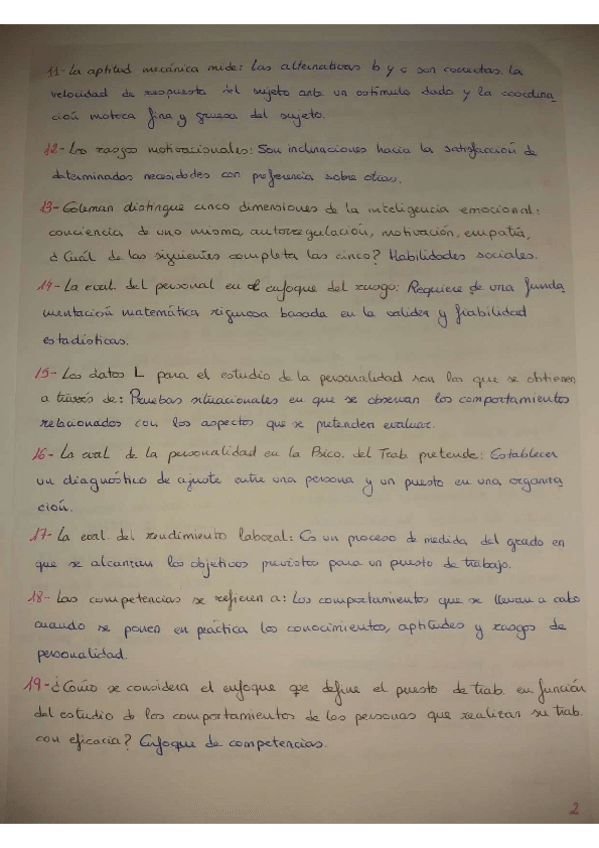 11- La aptitud mecánica mide: Las alternativas b y c son correctas. La
velocidad de respuesta del sujeto ante un estímulo dado y la coordina
ción motora fina y gruesa del sujeto.
12- Los rasgos motivacionales: Son inclinaciones hacia la satisfacción de
determinadas necesidades con preferencia sobre otras.
13- Goleman distingue cinco dimensiones de la inteligencia emocional:
conciencia de uno mismo, autorregulación, motivación, empatía,
¿Cuál de las siguientes completa las cinco? Habilidades sociales.
14- La eval. del personal en el enfoque del rasgo: Requiere de una funda
mentación matemática rigurosa basada en la validez y fiabilidad
estadísticas.
15- Los datos L para el estudio de la personalidad son los que se obtienen
a través de: Pruebas situacionales en que se observan los comportamientos
relacionados con los aspectos que se pretenden evaluar.
16- La eval de la personalidad en la Psico. del Trab pretende: Establecer
un diagnóstico de ajuste entre una persona y un puesto en una organiza
ción.
17- La eval. del rendimiento laboral: Es un proceso de medida del grado en
que se alcanzan los objetivos previstos para un puesto de trabajo.
18- Las competencias se refieren a: Los comportamientos que se llevan a cabo
cuando se ponen en práctica los conocimientos, aptitudes y rasgos de
personalidad.
19- ¿Cómo se considera el enfoque que define el puesto de trab. en función
del estudio de los comportamientos de las personas que realizan su trab.
con eficacia? Enfoque de competencias.
2